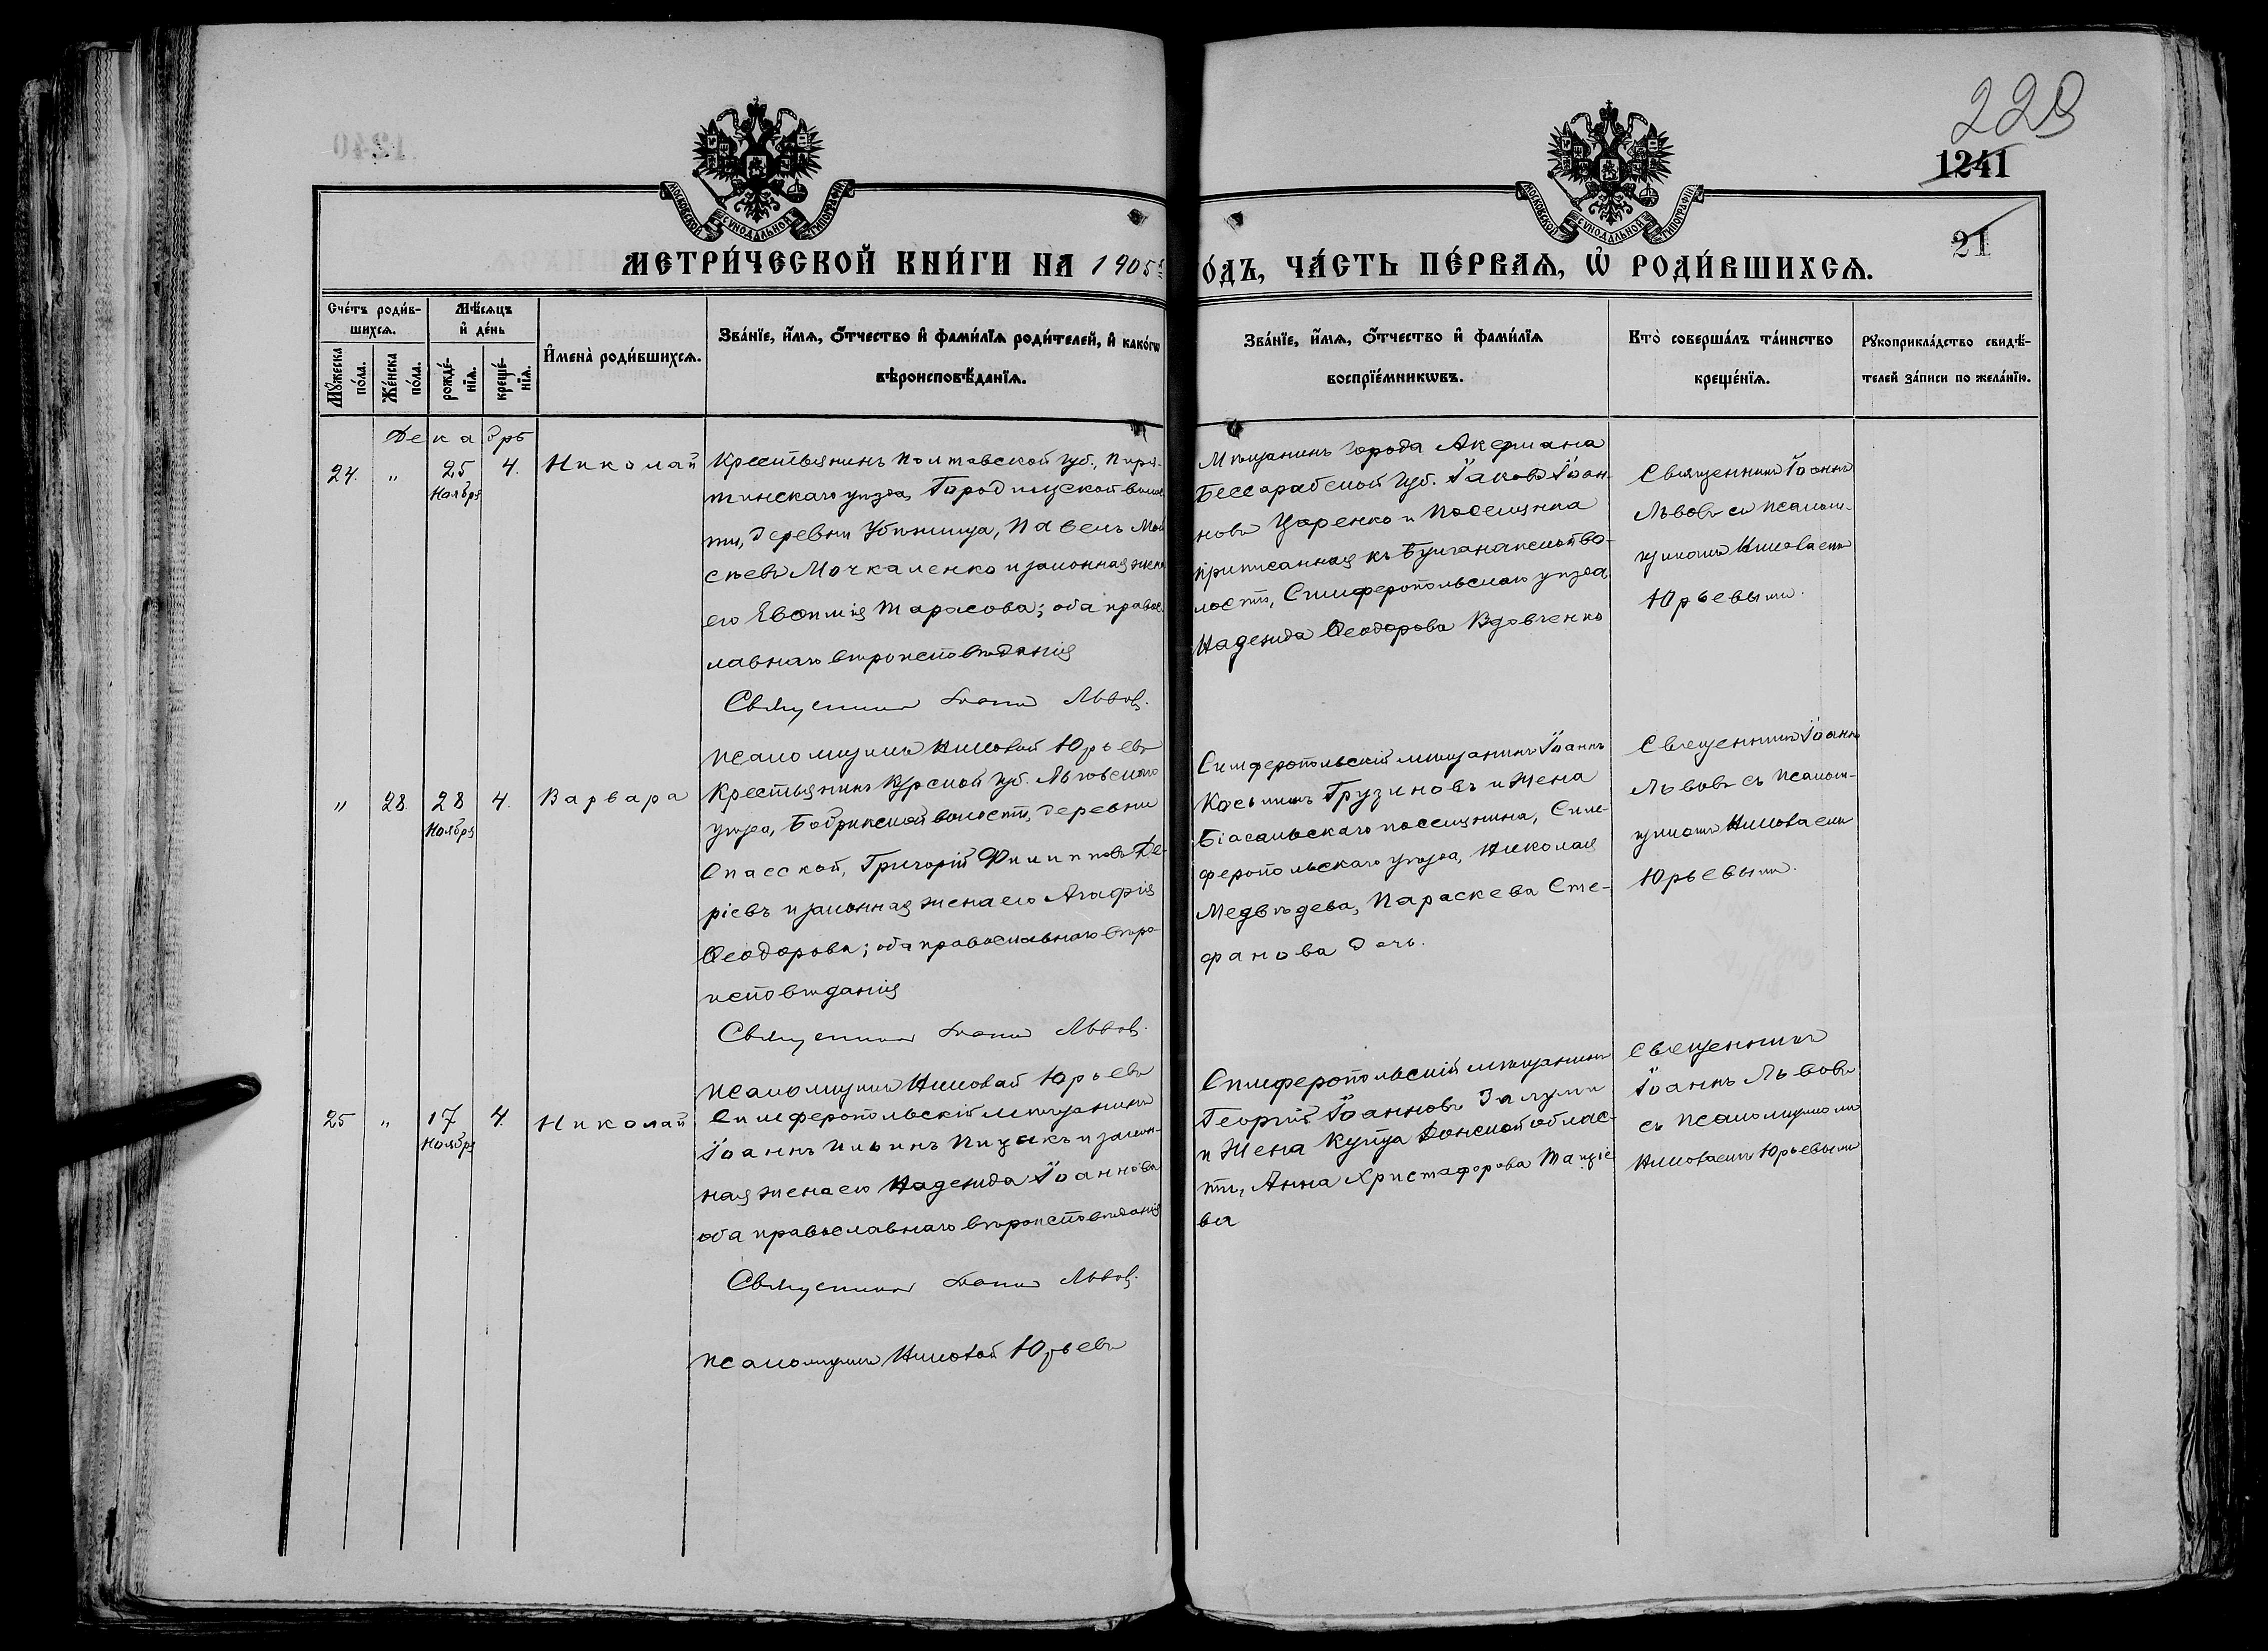 229
1241
21
МОСКОВСКОЙ СУНОДАЛЬНОЙ ТИПОГРАФІИ
МОСКОВСКОЙ СУНОДАЛЬНОЙ ТИПОГРАФІИ
МЕТРИ́ЧЕСКОЙ КНИ́ГИ НА 1905
О́ДЪ, ЧА́СТЬ ПЕ́РВАЯ, Ѡ҆ РОДИ́ВШИХСЯ.
Сче́тъ роди́в-
шихся.
Му́жеска
по́ла.
Же́нска
по́ла.
Мѣ́сяцъ
и҆ де́нь
рожде́-
нїя.
креще́-
нїя.
И҆мена̀ роди́вшихся.
Зва́нїе, и҆́мя, ѻ҆́тчество и҆ фами́лїя роди́телей, и҆ како́гѡ
вѣроисповѣ́данїя.
Зва́нїе, и҆́мя, ѻ҆́тчество и҆ фами́лїя
воспрїе́мникѡвъ.
Кто̀ соверша́лъ та́инство
креще́нїя.
Рꙋкоприкла́дство свидѣ́-
телей за́писи по жела́нїю.
Декабрь
24. " 25 Ноября 4. Николай
Крестьянинъ Полтавской губ., Пиря-
тинскаго уѣзда, Городищской волос
ти, деревни Убѣжища, Павелъ Мой
сѣевъ Мочкаленко и законная жена
его Евѳимія Тарасова; оба правос-
лавнаго вѣроисповѣданія
Священникъ Іоаннъ Львовъ.
Псаломщикъ Николай Юрьевъ
Мѣщанинъ города Акермана
Бессарабской губ. Іаковъ Іоан-
новъ Царенко и поселянка
приписанная къ Булганакской во-
лости, Симферопольскаго уѣзда,
Надежда Ѳеодорова Вдовченко
Священникъ Іоаннъ
Львовъ съ псалом-
щикомъ Николаемъ
Юрьевымъ.
" 28. 28 Ноября 4. Варвара
Крестьянинъ Курской губ. Льговскаго
уѣзда, Бобрикской волости, деревни
Спасской, Григорій Филипповъ Де-
ріевъ и законная жена его Агафія
Ѳеодорова; оба православнаго вѣро-
исповѣданія
Священникъ Іоаннъ Львовъ.
Псаломщикъ Николай Юрьевъ
Симферопольскій мѣщанинъ Іоаннъ
Косьминъ Грузиновъ и жена
Біасальскаго поселянина, Сим-
феропольскаго уѣзда, Николая
Медвѣдева, Параскева Сте-
фанова дочь.
Священникъ Іоаннъ
Львовъ съ псалом-
щикомъ Николаемъ
Юрьевымъ.
25 " 17 Ноября 4. Николай
Симферопольскій мѣщанинъ
Іоаннъ Ильинъ Пизикъ и закон-
ная жена его Надежда Іоаннова
оба православнаго вѣроисповѣданія
Священникъ Іоаннъ Львовъ.
Псаломщикъ Николай Юрьевъ
Симферопольскій мѣщанинъ
Георгій Іоанновъ
и жена купца Донской облас-
ти, Анна Христафорова
ва
Священникъ
Іоаннъ Львовъ
съ псаломщикомъ
Николаемъ Юрьевымъ